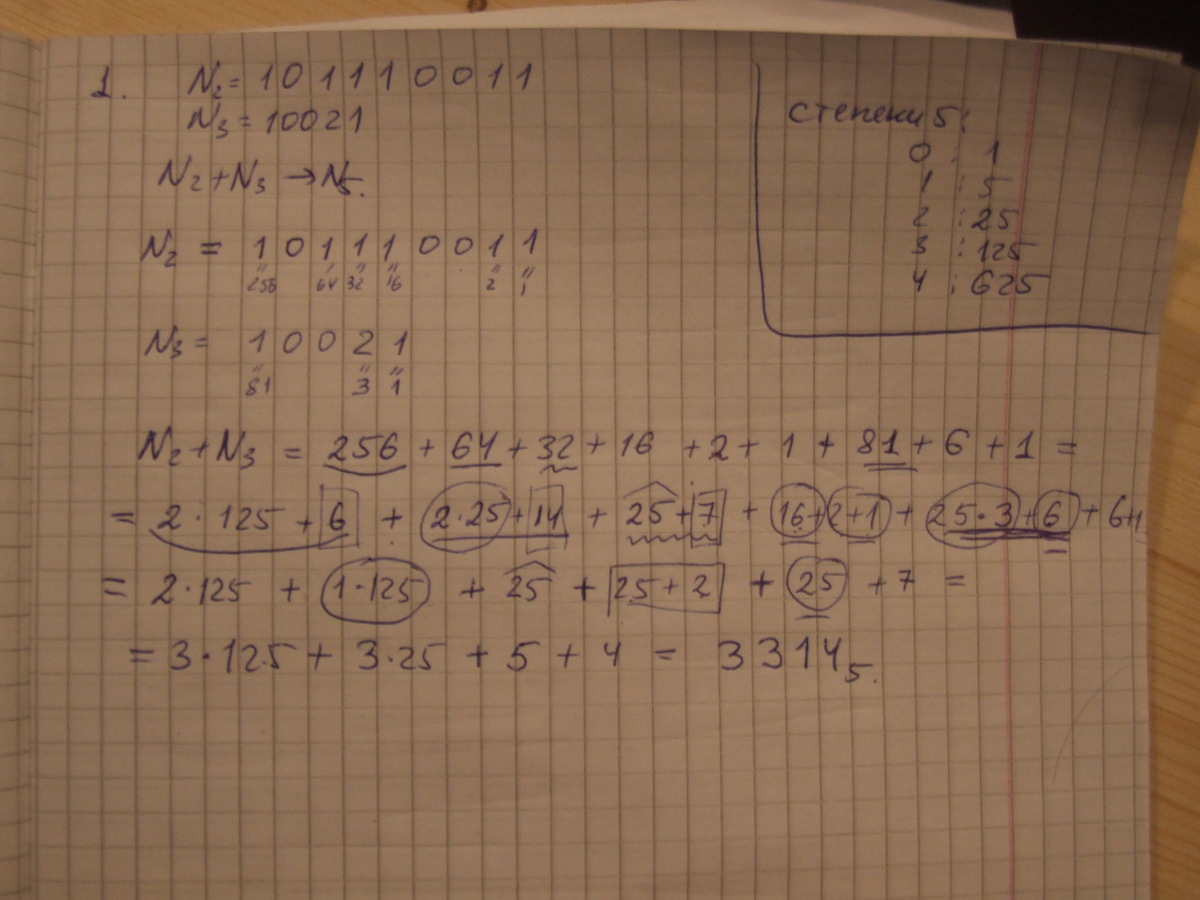 1. N₂ = 101110011
N₃ = 10021
N₂+N₃ → N₅.
степени 5:
0 : 1
1 : 5
2 : 25
3 : 125
4 : 625
N₂ = 1 0 1 1 1 0 0 1 1
" " " " " "
256 64 32 16 2 1
N₃ = 1 0 0 2 1
" " "
81 3 1
N₂+N₃ = 256 + 64 + 32 + 16 + 2 + 1 + 81 + 6 + 1 =
= 2·125 + 6 + 2·25 + 14 + 25 + 7 + 16 + 2+1 + 25·3 + 6 + 6+1
= 2·125 + 1·125 + 25 + 25 + 2 + 25 + 7 =
= 3·125 + 3·25 + 5 + 4 = 3314₅.